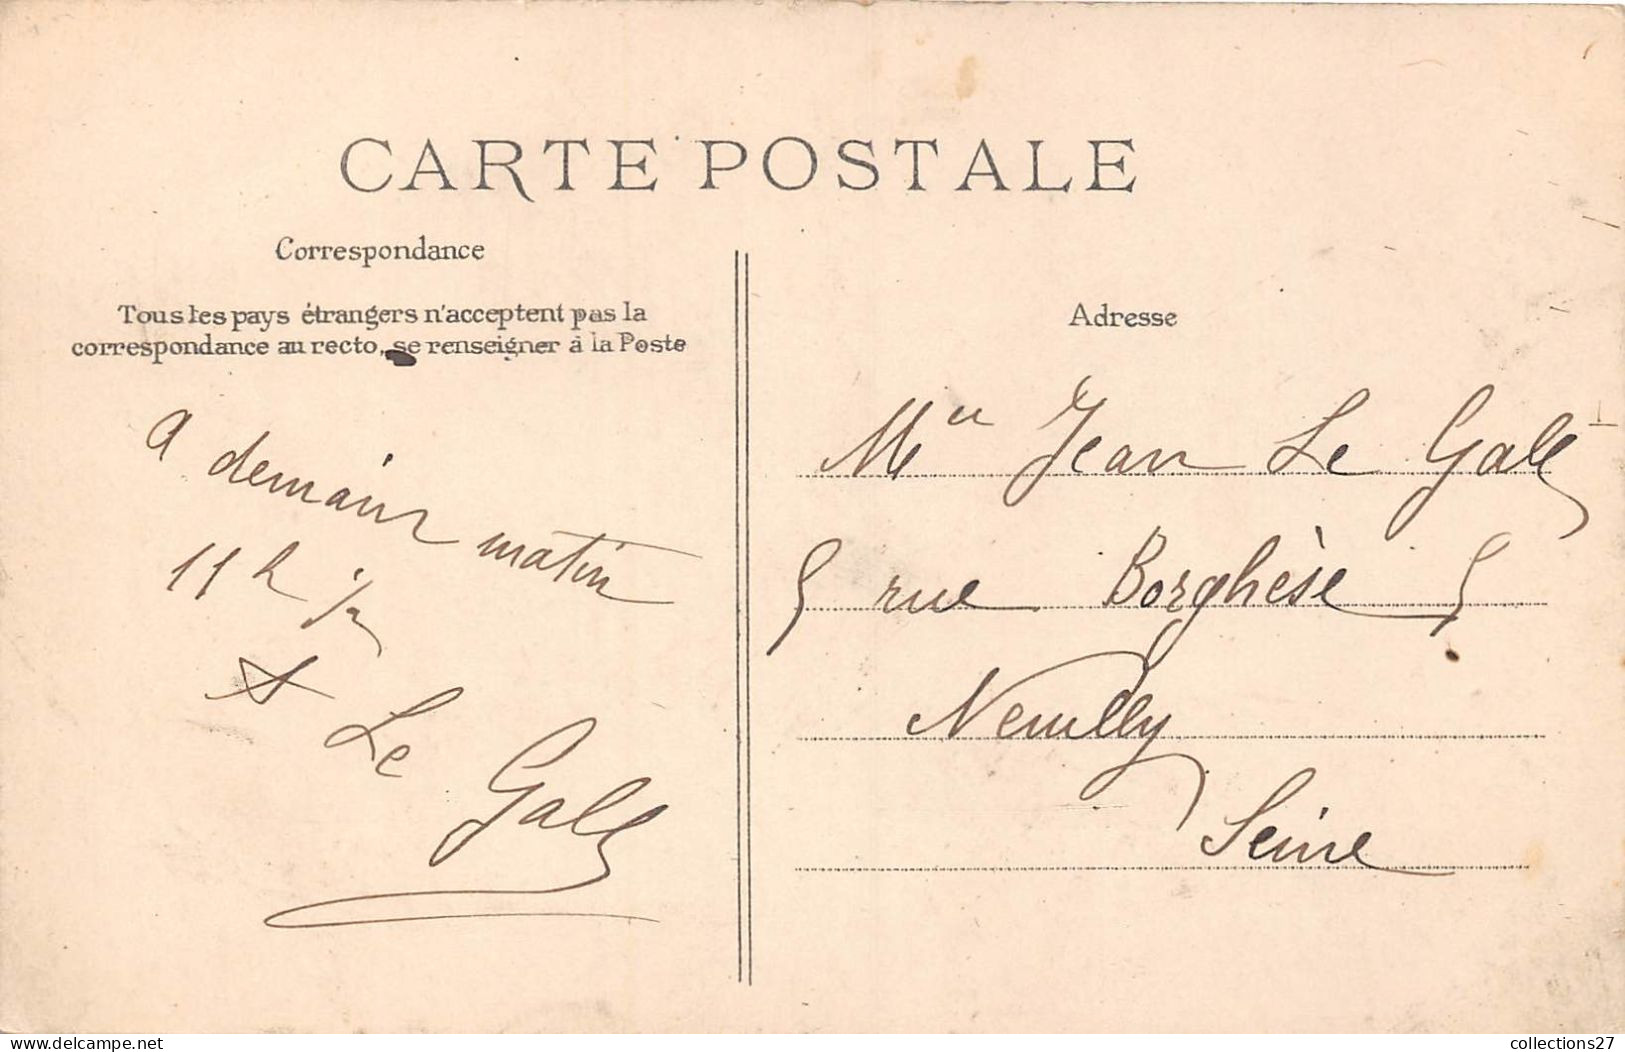 CARTE POSTALE
Correspondance
Tous les pays étrangers n'acceptent pas la
correspondance au recto, se renseigner à la Poste
A demain matin
11 h 1/2
Le Gall
Adresse
Jean Le Gall
5 rue Borghèse 5
Neuilly
Seine
collections27